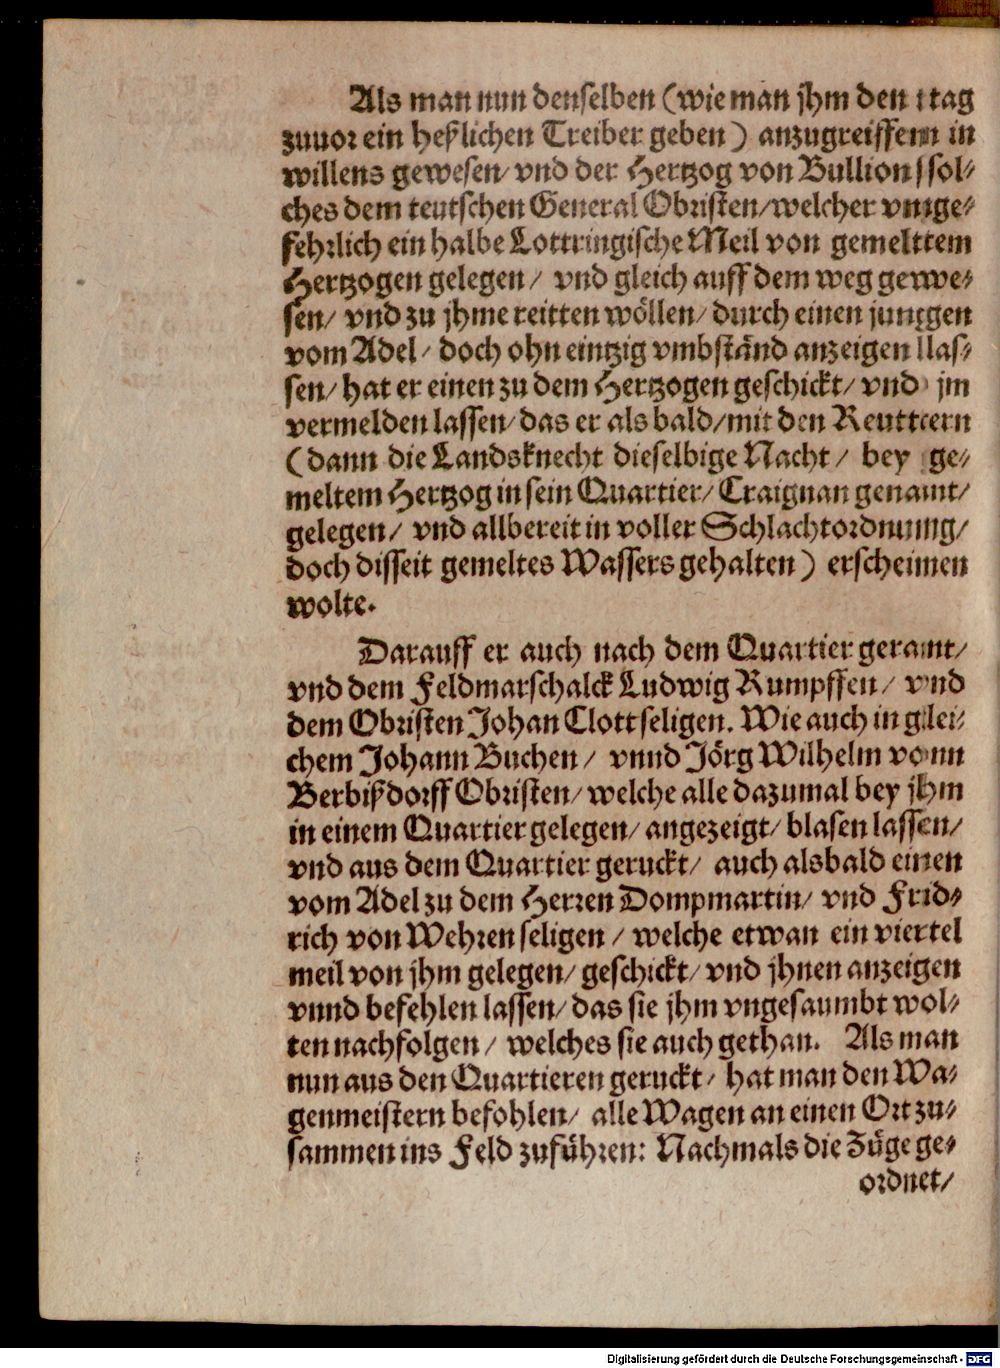 Als man nun denselben (wie man jhm den tag
zuuor ein heßlichen Treiber geben) anzugreiffenn in
willens gewesen/ vnd der Hertzog von Bullion/ sol-
ches dem teutschen General Obristen/ welcher vnge-
fehrlich ein halbe Lottringische Meil von gemeltem
Hertzogen gelegen/ vnd gleich auff dem weg gewe-
sen/ vnd zu jhme reitten wöllen/ durch einen jungen
vom Adel/ doch ohn eintzig vmbständ anzeigen las-
sen/ hat er einen zu dem Hertzogen geschickt/ vnd jm
vermelden lassen/ das er als bald/ mit den Reuttern
(dann die Landsknecht dieselbige Nacht/ bey ge-
meltem Hertzog in sein Quartier/ Craignan genamt/
gelegen/ vnd allbereit in voller Schlachtordnung/
doch disseit gemeltes Wassers gehalten) erscheinen
wolte.
Darauff er auch nach dem Quartier gerant/
vnd dem Feldmarschalck Ludwig Rumpffen/ vnd
dem Obristen Johan Clott seligen. Wie auch in glei-
chem Johann Buchen/ vnnd Jörg Wilhelm vonn
Berbißdorff Obristen/ welche alle dazumal bey jhm
in einem Quartier gelegen/ angezeigt/ blasen lassen/
vnd aus dem Quartier geruckt/ auch alsbald einen
vom Adel zu dem Herren Dompmartin/ vnd Frid-
rich von Wehren seligen/ welche etwan ein viertel
meil von jhm gelegen/ geschickt/ vnd jhnen anzeigen
vnnd befehlen lassen/ das sie jhm vngesaumbt wol-
ten nachfolgen/ welches sie auch gethan. Als man
nun aus den Quartieren geruckt/ hat man den Wa-
genmeistern befohlen/ alle Wagen an einen Ort zu-
sammen ins Feld zuführen: Nachmals die Züge ge-
ordnet/
Digitalisierung gefördert durch die Deutsche Forschungsgemeinschaft - DFG